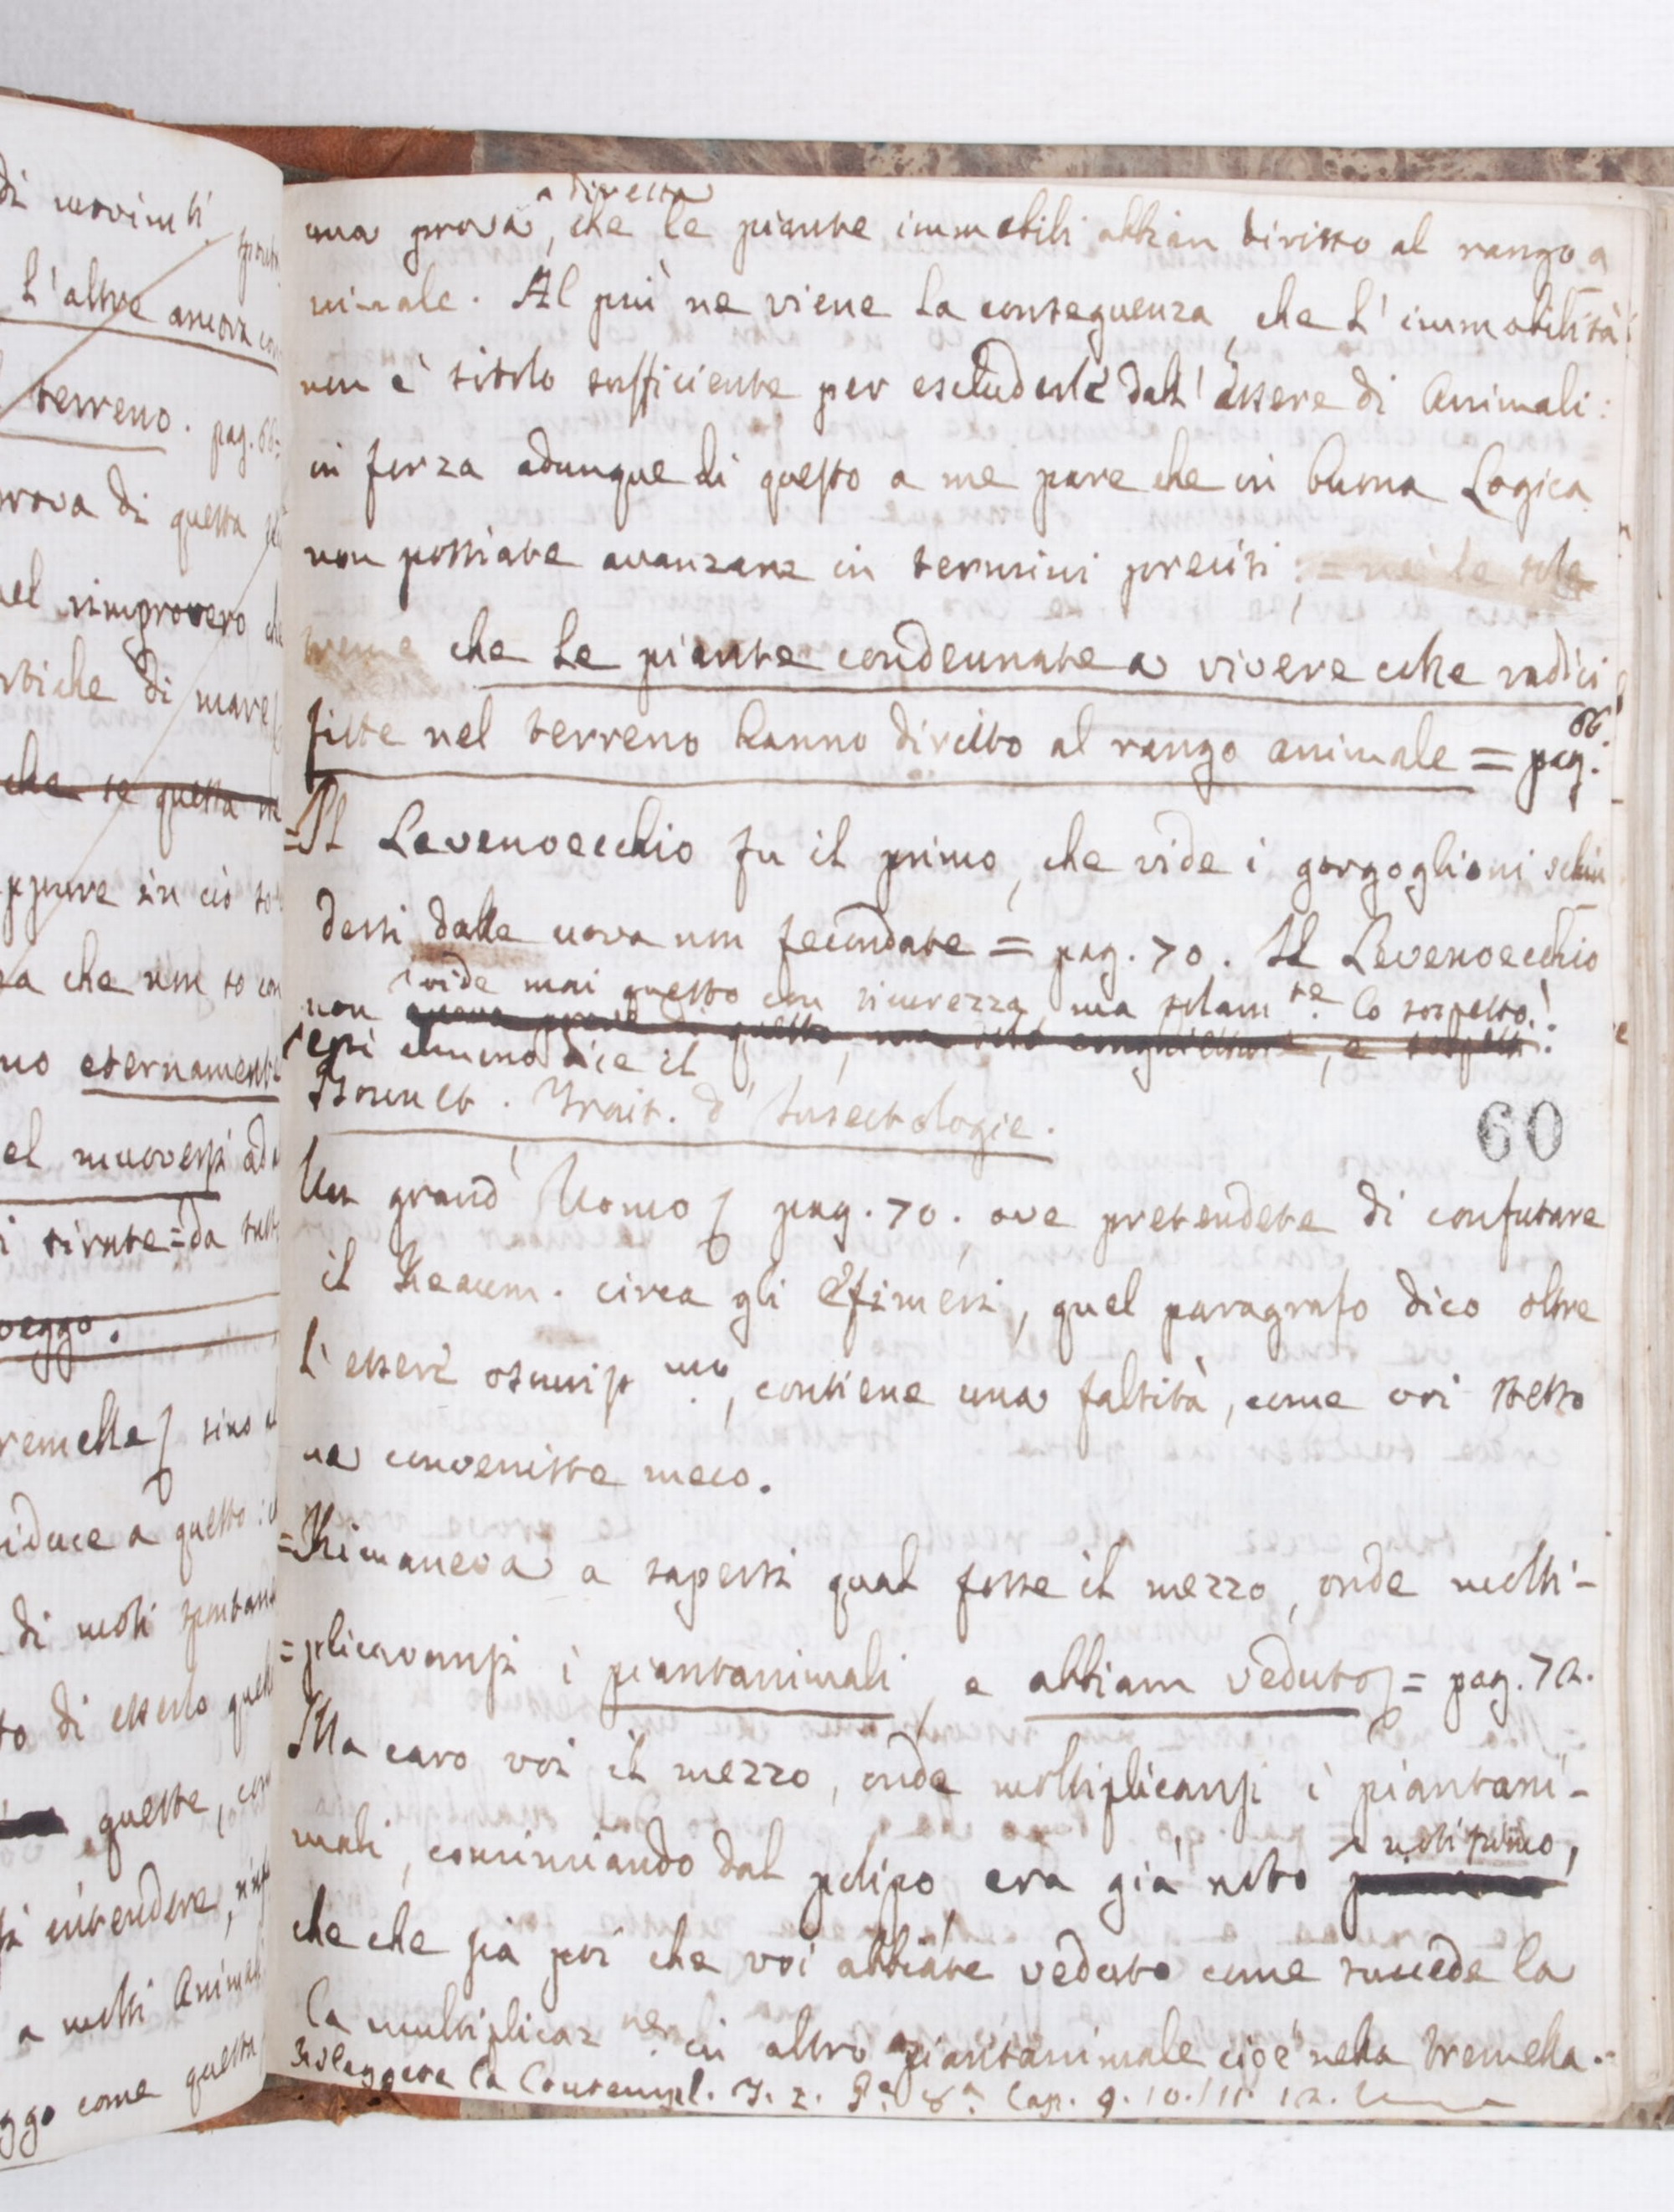 di movimti
L'altre ancora
terreno. pag. 66
prova di questa
nel rimprovero
ortiche di mare
che se questa
eppure sin ciò
ma che non so con
no eternamente
el muoversi ad
i tirate = da tutt
veggo.
Tremelle] sino
riduce a questo:
di moti spontane
to di esserlo quel
queste, com
si intendere,
a molti Animal
eggo come questa
a diretta
una prova, che le piante immobili abbian diritto al rango a
nimale. Al più ne viene la conseguenza, che l'immobilità
non è titolo sufficiente per escluderle dall'essere di Animali:
in forza adunque di questo a me pare che in buona Logica
non possiate avanzare in termini precisi : = nè le sole
che le piante condennate a vivere colle radici
fitte nel terreno hanno diritto al rango animale = pag. 66.
= Il Levenoecchio fu il primo, che vide i gorgoglioni schiu
dersi dalle uova non fecondate = pag. 70. Il Levenoecchio
vide mai questo con sicurezza, ma solamte. lo sospettò.
non
così almeno dice il
Bonnet. Trait. d'Insectologie.
60
Un grand'Uomo] pag. 70. ove pretendete di confutare
il Reaum. circa gli Efimeri, quel paragrafo dico oltre
l'essere oscurissmo., contiene una falsità, come voi stesso
ne conveniste meco.
= Rimaneva a sapersi qual fosse il mezzo, onde molti-
= plicavansi i piantanimali, e abbiam veduto] = pag. 72.
Ma caro voi il mezzo, onde moltiplicansi i piantani-
mali, cominciando dal polipo, era già noto notissimo,
che che sia poi che voi abbiate veduto come succede la
la multiplicazne. in altro piantanimale cioè nella tremella.
Rileggete la Contempl. T. 2. Pe. 8a. Cap. 9. 10. 11. 12.